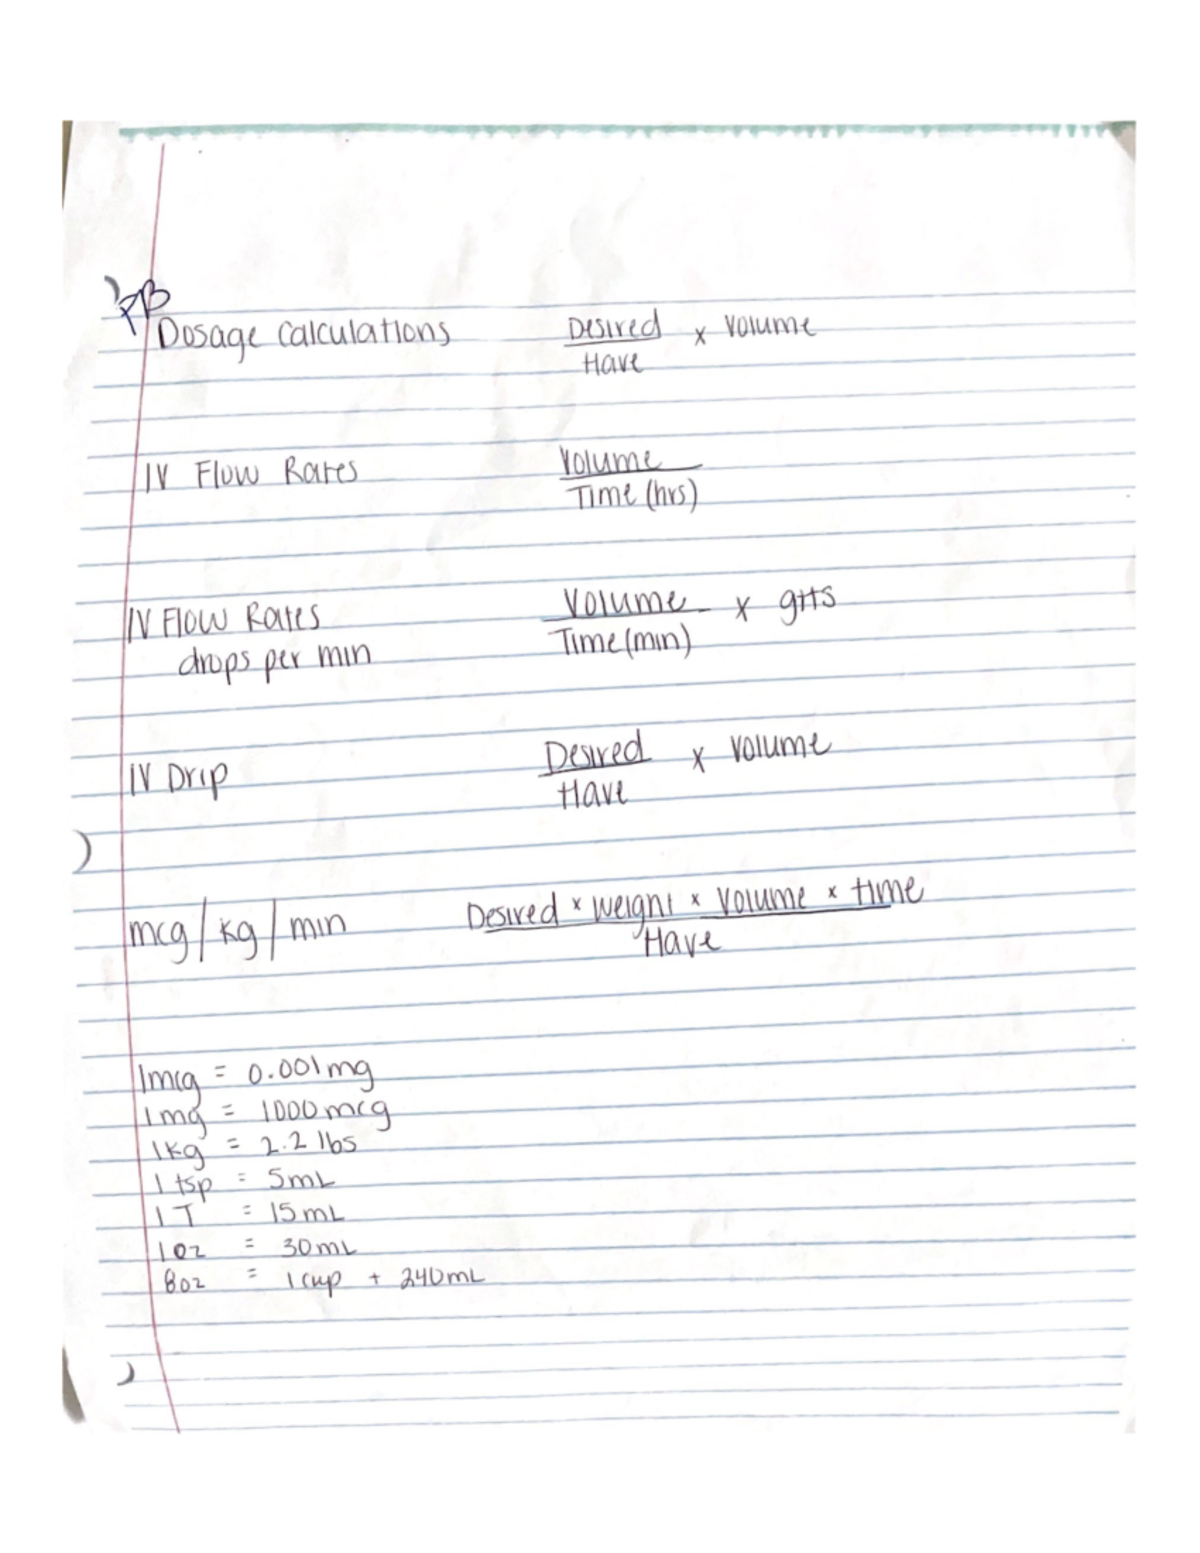 PB
Dosage Calculations Desired x Volume
Have
IV Flow Rates Volume
Time (hrs)
IV Flow Rates Volume x gtts
drops per min Time (min)
IV Drip Desired x Volume
Have
mcg/kg/min Desired x weight x Volume x time
Have
1mcg = 0.001mg
1mg = 1000mcg
1kg = 2.2 lbs
1 tsp = 5mL
1 T = 15mL
1oz = 30mL
8oz = 1cup + 240mL